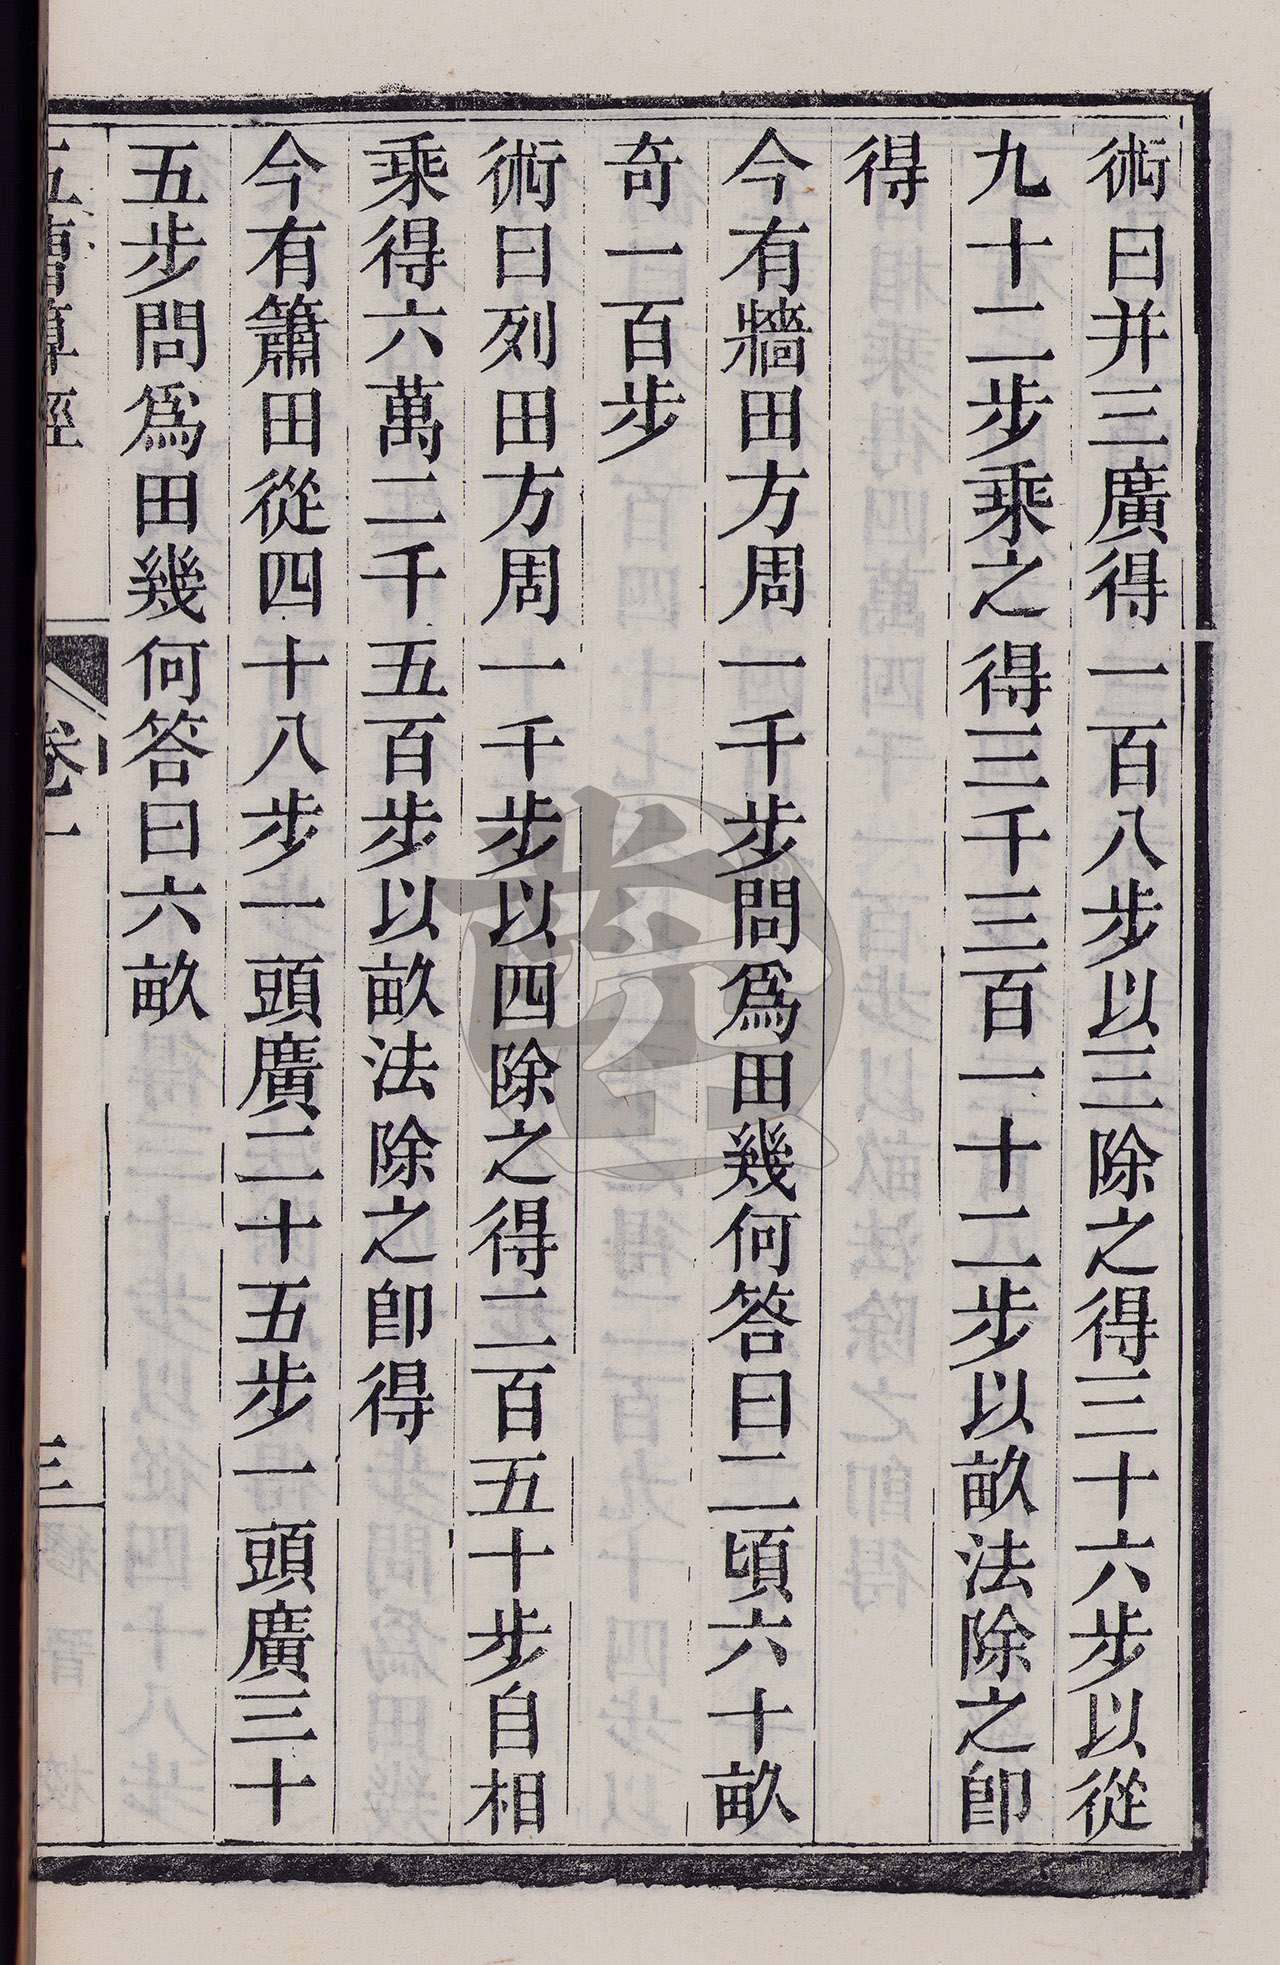 術曰并三廣得一百八步以三除之得三十六步以從
九十二步乘之得三千三百一十二步以畝法除之卽
得
今有牆田方周一千步問爲田幾何答曰二頃六十畝
奇一百步
術曰列田方周一千步以四除之得二百五十步自相
乘得六萬二千五百步以畝法除之卽得
今有簫田從四十八步一頭廣二十五步一頭廣三十
五步問爲田幾何答曰六畝
五曹算經 卷一 三